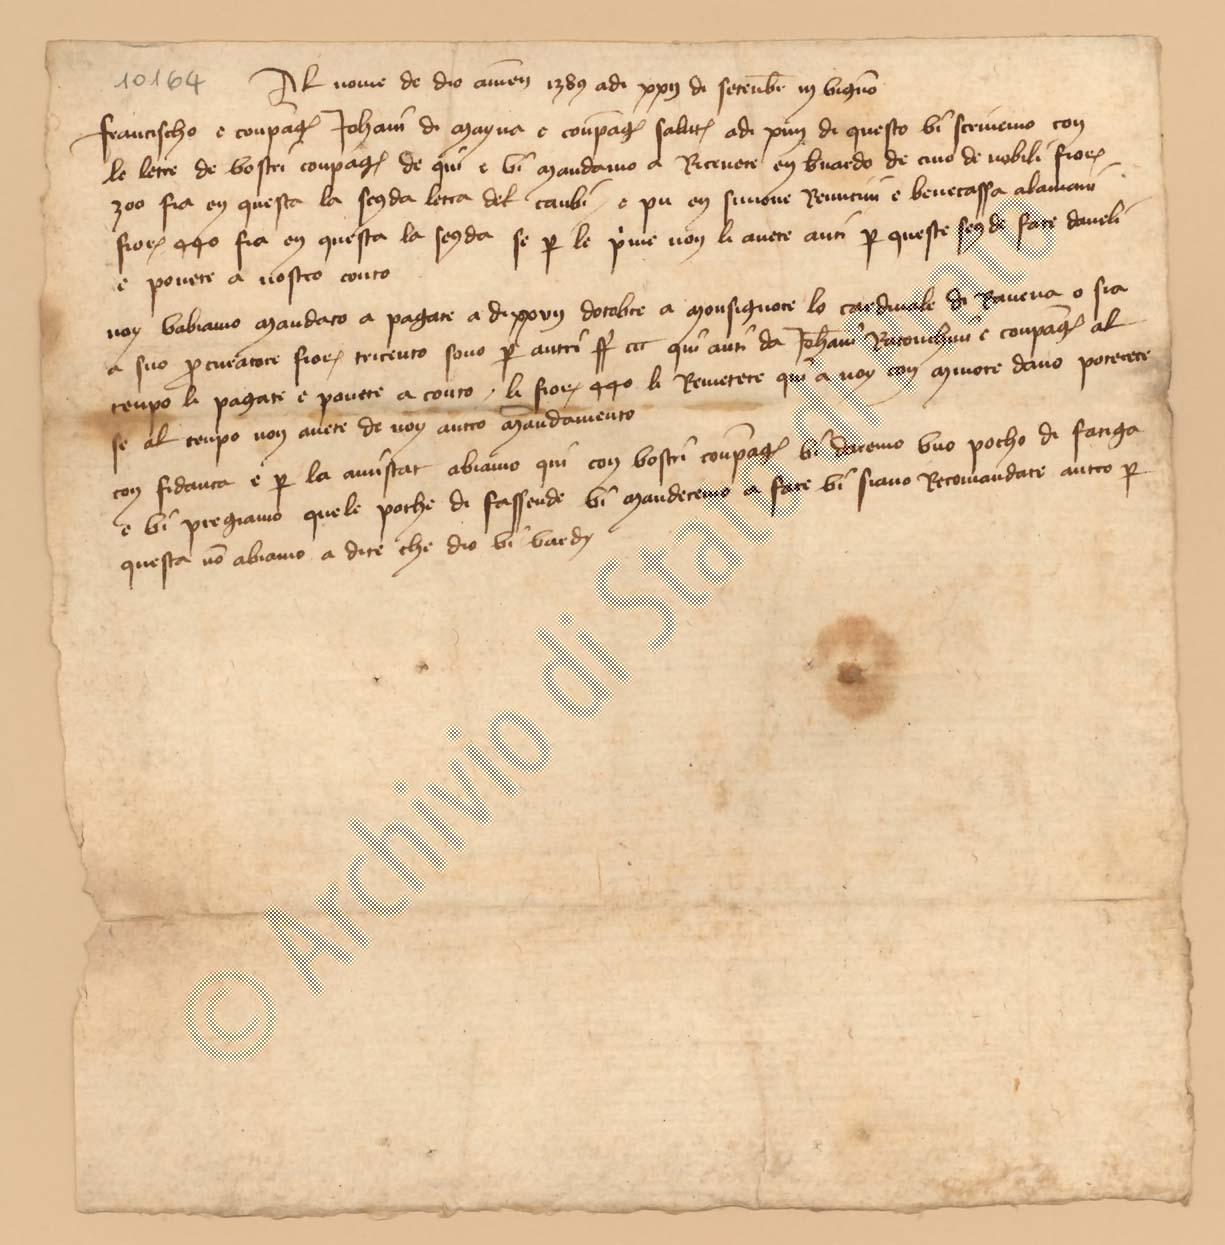 10164
Al nome de dio amen 1389 adi xxii di setenbr in vignon
francischo e conpag Johani di mayna e conpag salut adi xiiii di questo vi scrivemo con
le letre de vostri conpag de qui e vi mandamo a Ricevere en de cino de nobili fior
300 fia en questa la seghda letra del canbi e piu en simone e benecassa alamani
fior 440 fia en questa la seghda se per le prime non li avete auti per queste seghde fate daveli
e ponete a nostro conto
noy vabiamo mandato a pagare a di xxvii dotobre a monsignore lo cardinale di Ravena o sia
a suo procuratore fior tricento sono per autri ff ccc qui auti da Johani e conpag al
tenpo li pagate e ponete a conto li fior 440 li Remetete qui a noy con minore dano poterete
se al tenpo non avete de noy autro mandamento
con fidanca e per la amistat abiamo qui con vostri conpag vi daremo uno pocho di fatiga
e vi pregiamo quele poche di fassende vi manderemo a fare vi siano Recomandate autro per
questa non abiamo a dire che dio vi vardy
© Archivio di Stato di Prato